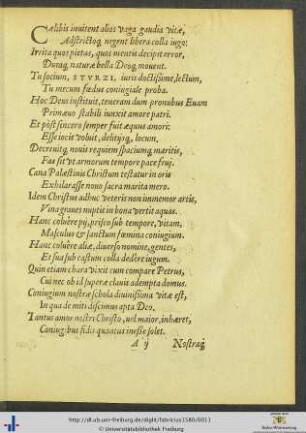 Cælibis invitent alios vaga gaudia vitæ,
Adstrictoq; negent libera colla iugo:
Irrita quos pietas, quos mentis decipit error,
Donaq; naturæ bella Deoq; movent.
Tu socium, STVRZI, iuris doctissime, lectum,
Tu mecum fœdus coniugiale proba.
Hoc Deus instituit, teneram dum pronubus Euam
Primæuo stabili iunxit amore patri.
Et pòst sincero semper fuit æquus amori:
Esse ioci voluit, delitijsq; locum,
Decreuitq; nouis requiem spaciumq; maritis,
Fas sit vt armorum tempore pace frui.
Cana Palæstinis Christum testatur in oris
Exhilarasse nouo sacra marita mero.
Idem Christus adhuc veteris non immemor artis,
Vina graues nuptis in bona vertit aquas.
Hanc coluêre pij, prisco sub tempore, vitam,
Masculus & sanctum fœmina coniugium.
Hanc coluêre aliæ, diuerso nomine, gentes,
Et sua sub castum colla dedêre iugum.
Quin etiam chara vixit cum compare Petrus,
Cui nec ob id superæ clauis ademta domus.
Coniugium nostræ schola diuinissima vitæ est,
In qua de miti discimus apta Deo.
Tantus amor nostri Christo, vel maior, inhæret,
Coniugibus fidis quantus inesse solet.
A ij Nostraq́;
http://dl.ub.uni-freiburg.de/diglit/fabricius1580/0011
© Universitätsbibliothek Freiburg